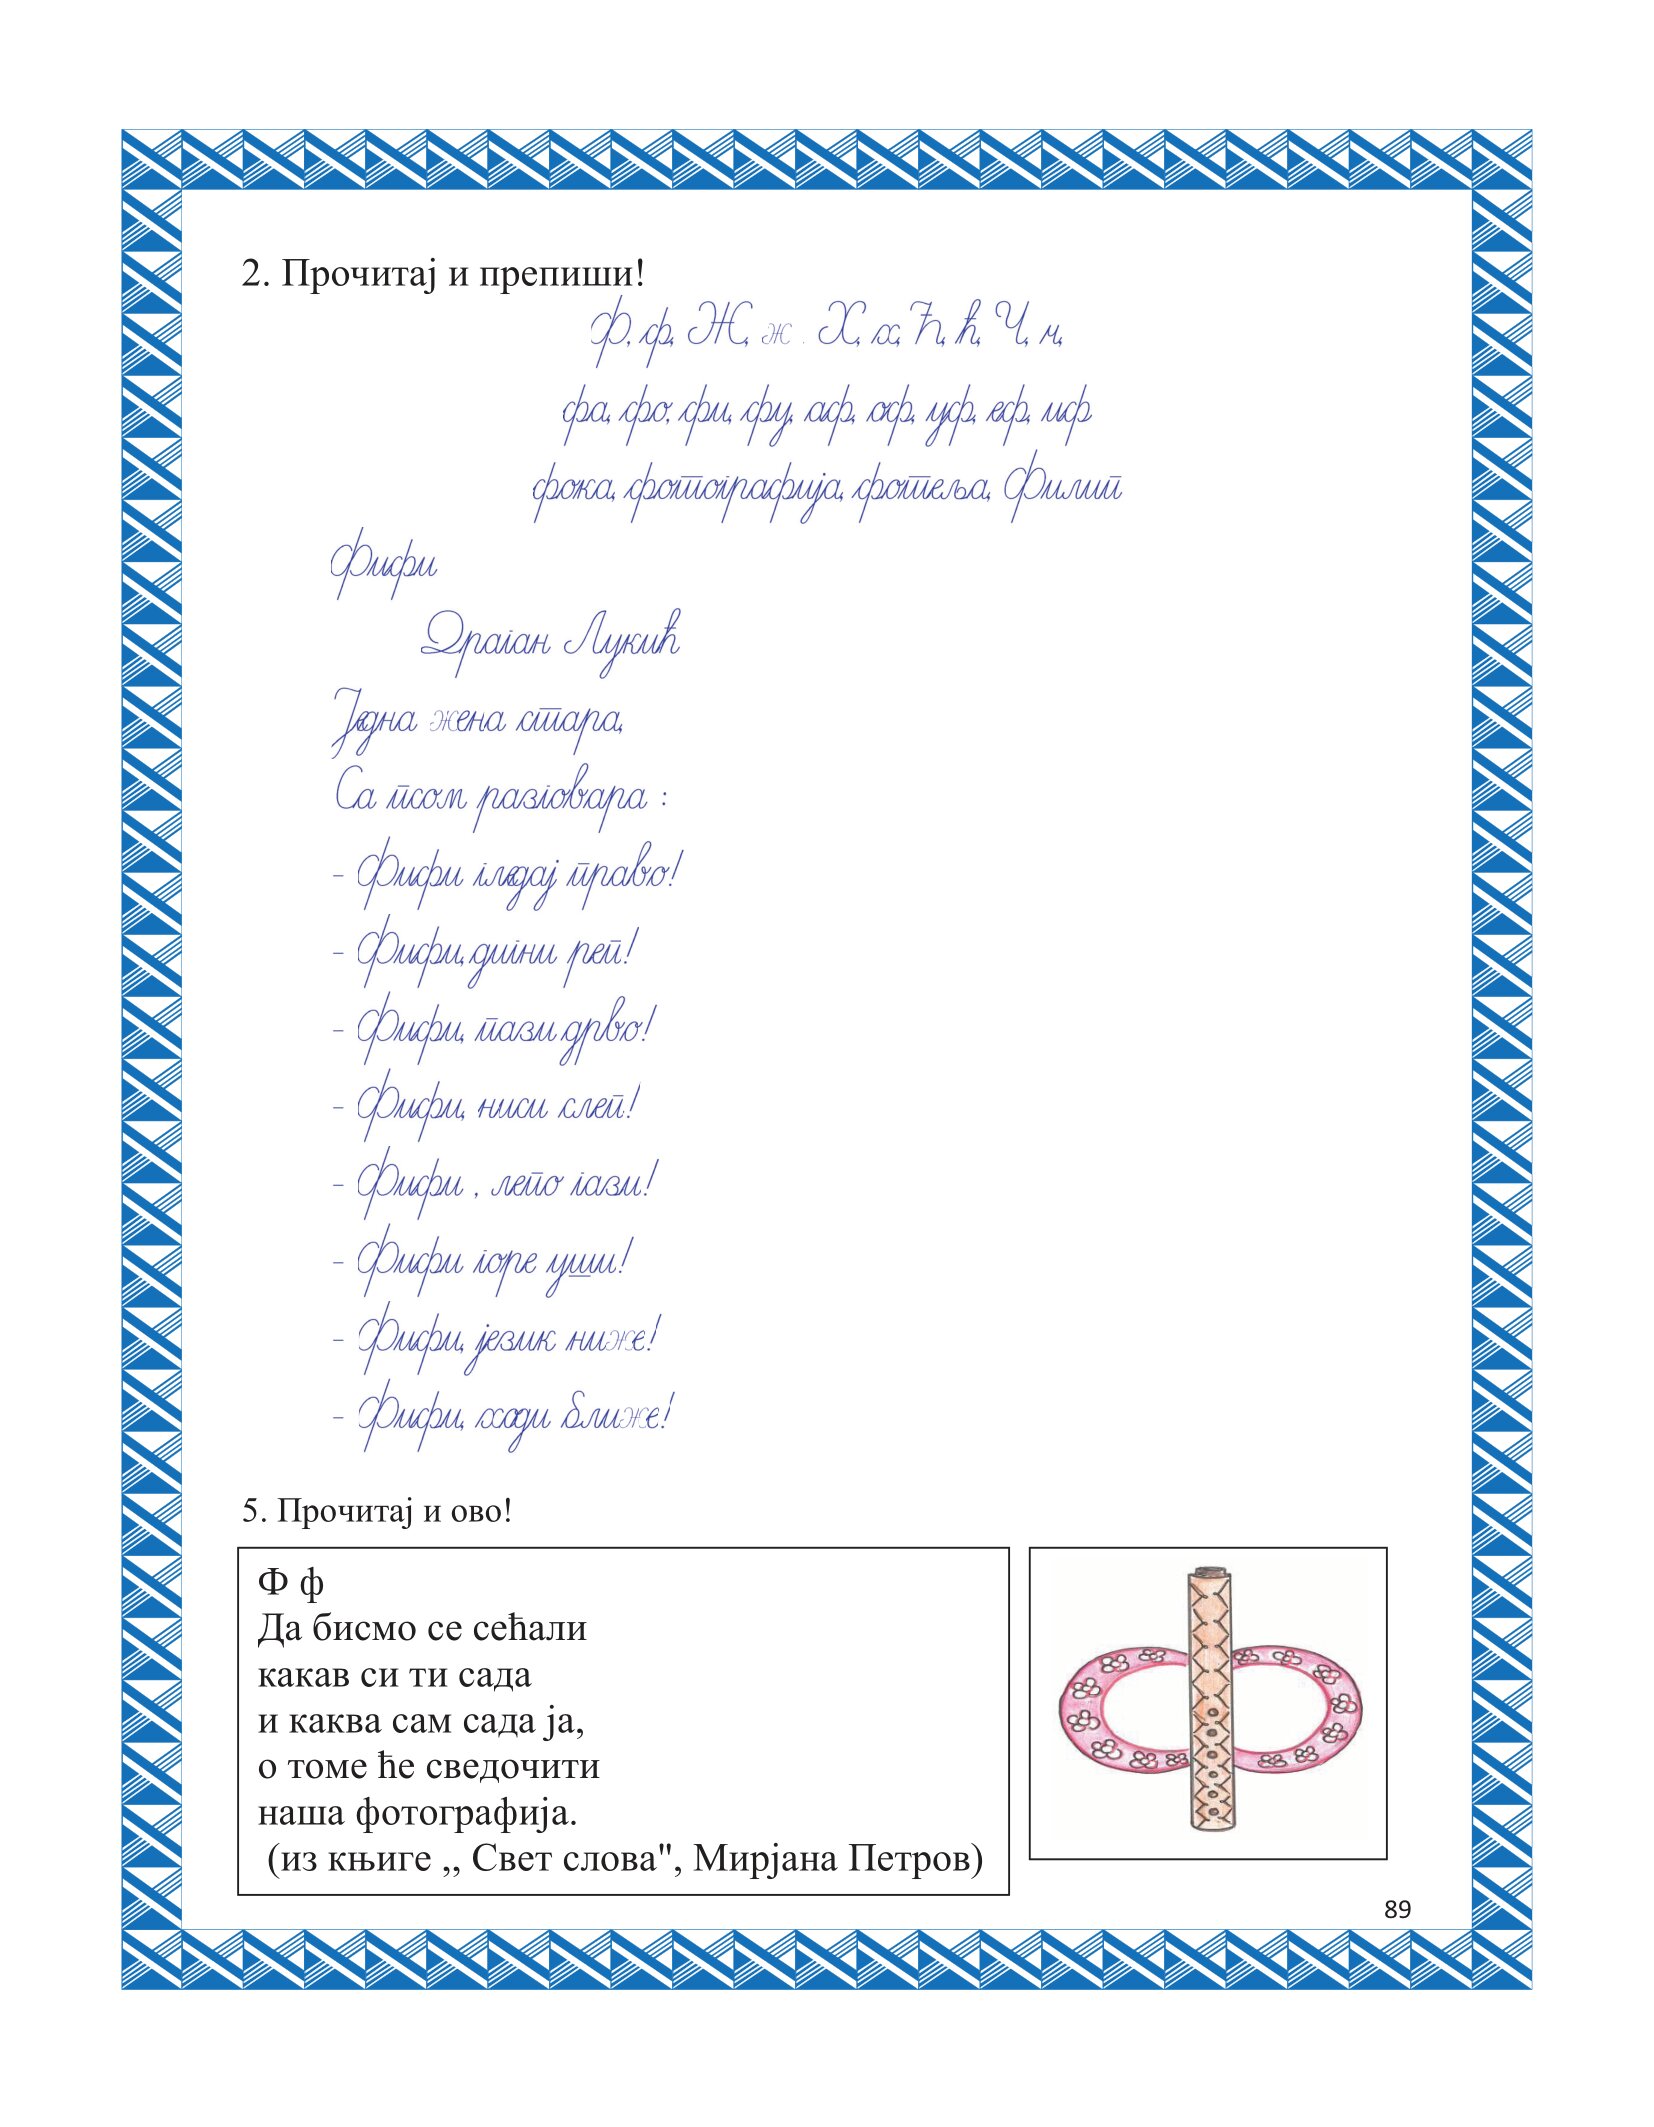 2. Прочитај и препиши!
Ф, ф, Ж, ж . Х, х, Ћ, ћ, Ч, ч,
фа, фо, фи, фу, аф, оф, уф, еф, иф
фока, фотографија, фотеља, Филип
Фифи
Драган Лукић
Једна жена стара,
Са псом разговара :
- Фифи гледај право!
- Фифи, дигни реп!
- Фифи, пази дрво!
- Фифи, ниси слеп!
- Фифи , лепо гази!
- Фифи горе уши!
- Фифи, језик ниже!
- Фифи, ходи ближе!
5. Прочитај и ово!
Ф ф
Да бисмо се сећали
какав си ти сада
и каква сам сада ја,
о томе ће сведочити
наша фотографија.
(из књиге ,, Свет слова", Мирјана Петров)
89